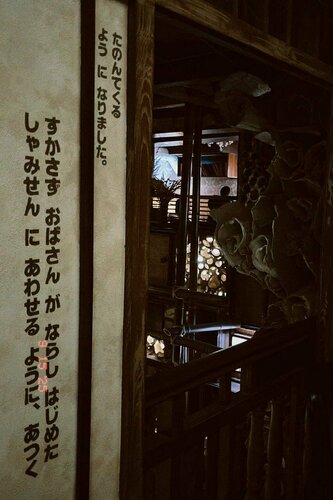 たのんでくる
よう に なりました。
すかさず おばさん が ならし はじめた
しゃみせん に あわせる ように、あつく